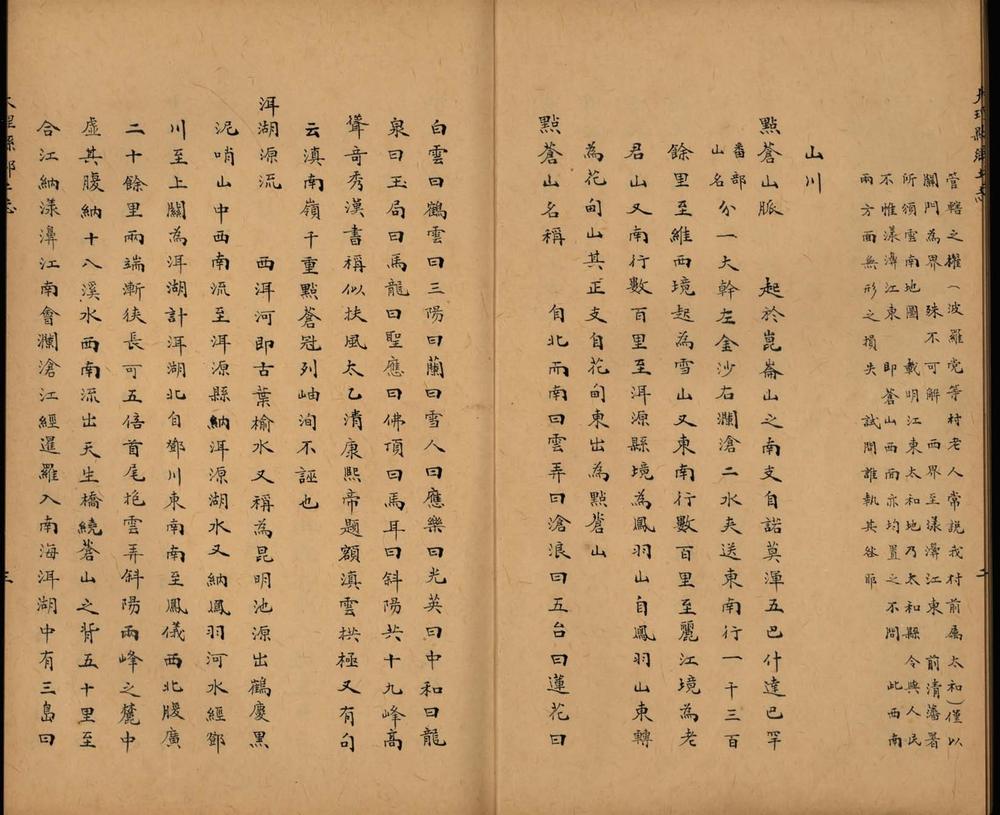 管轄之權(波羅党等村老人常説我村前屬太和)僅以
關門為界 殊不可解 西界至漾濞江東 前清藩署
所頒雲南地圖 載明江東太和地乃太和縣 令與人民
不惟漾濞江東 即蒼山西面亦均置之不問 此西南
兩方面無形之損失 試問誰執其咎耶
山川
點蒼山脈 起於崑崙山之南支自諾莫渾五巴什達巴罕
番部山名 分一大幹左金沙右瀾滄二水夾送東南行一千三百
餘里至維西境起為雪山又東南行數百里至麗江境為老
君山又南行數百里至洱源縣境為鳳羽山自鳳羽山東轉
為花甸山其正支自花甸東出為點蒼山
點蒼山名稱 自北而南曰雲弄曰滄浪曰五台曰蓮花曰
白雲曰鶴雲曰三陽曰蘭曰雪人曰應樂曰光英曰中和曰龍
泉曰玉局曰馬龍曰聖應曰佛頂曰馬耳曰斜陽共十九峰高
聳奇秀漢書稱似扶風太乙清康熙帝題額滇雲拱極又有句
云滇南嶺千重點蒼冠列岫洵不誣也
洱湖源流 西洱河即古葉榆水又稱為昆明池源出鶴慶黑
泥哨山中西南流至洱源縣納洱源湖水又納鳳羽河水經鄧
川至上關為洱湖計洱湖北自鄧川東南南至鳳儀西北腹廣
二十餘里兩端漸狹長可五倍首尾抱雲弄斜陽兩峰之麓中
虛其腹納十八溪水西南流出天生橋繞蒼山之背五十里至
合江納漾濞江南會瀾滄江經暹羅入南海洱湖中有三島曰
大理縣鄉土志
二
三